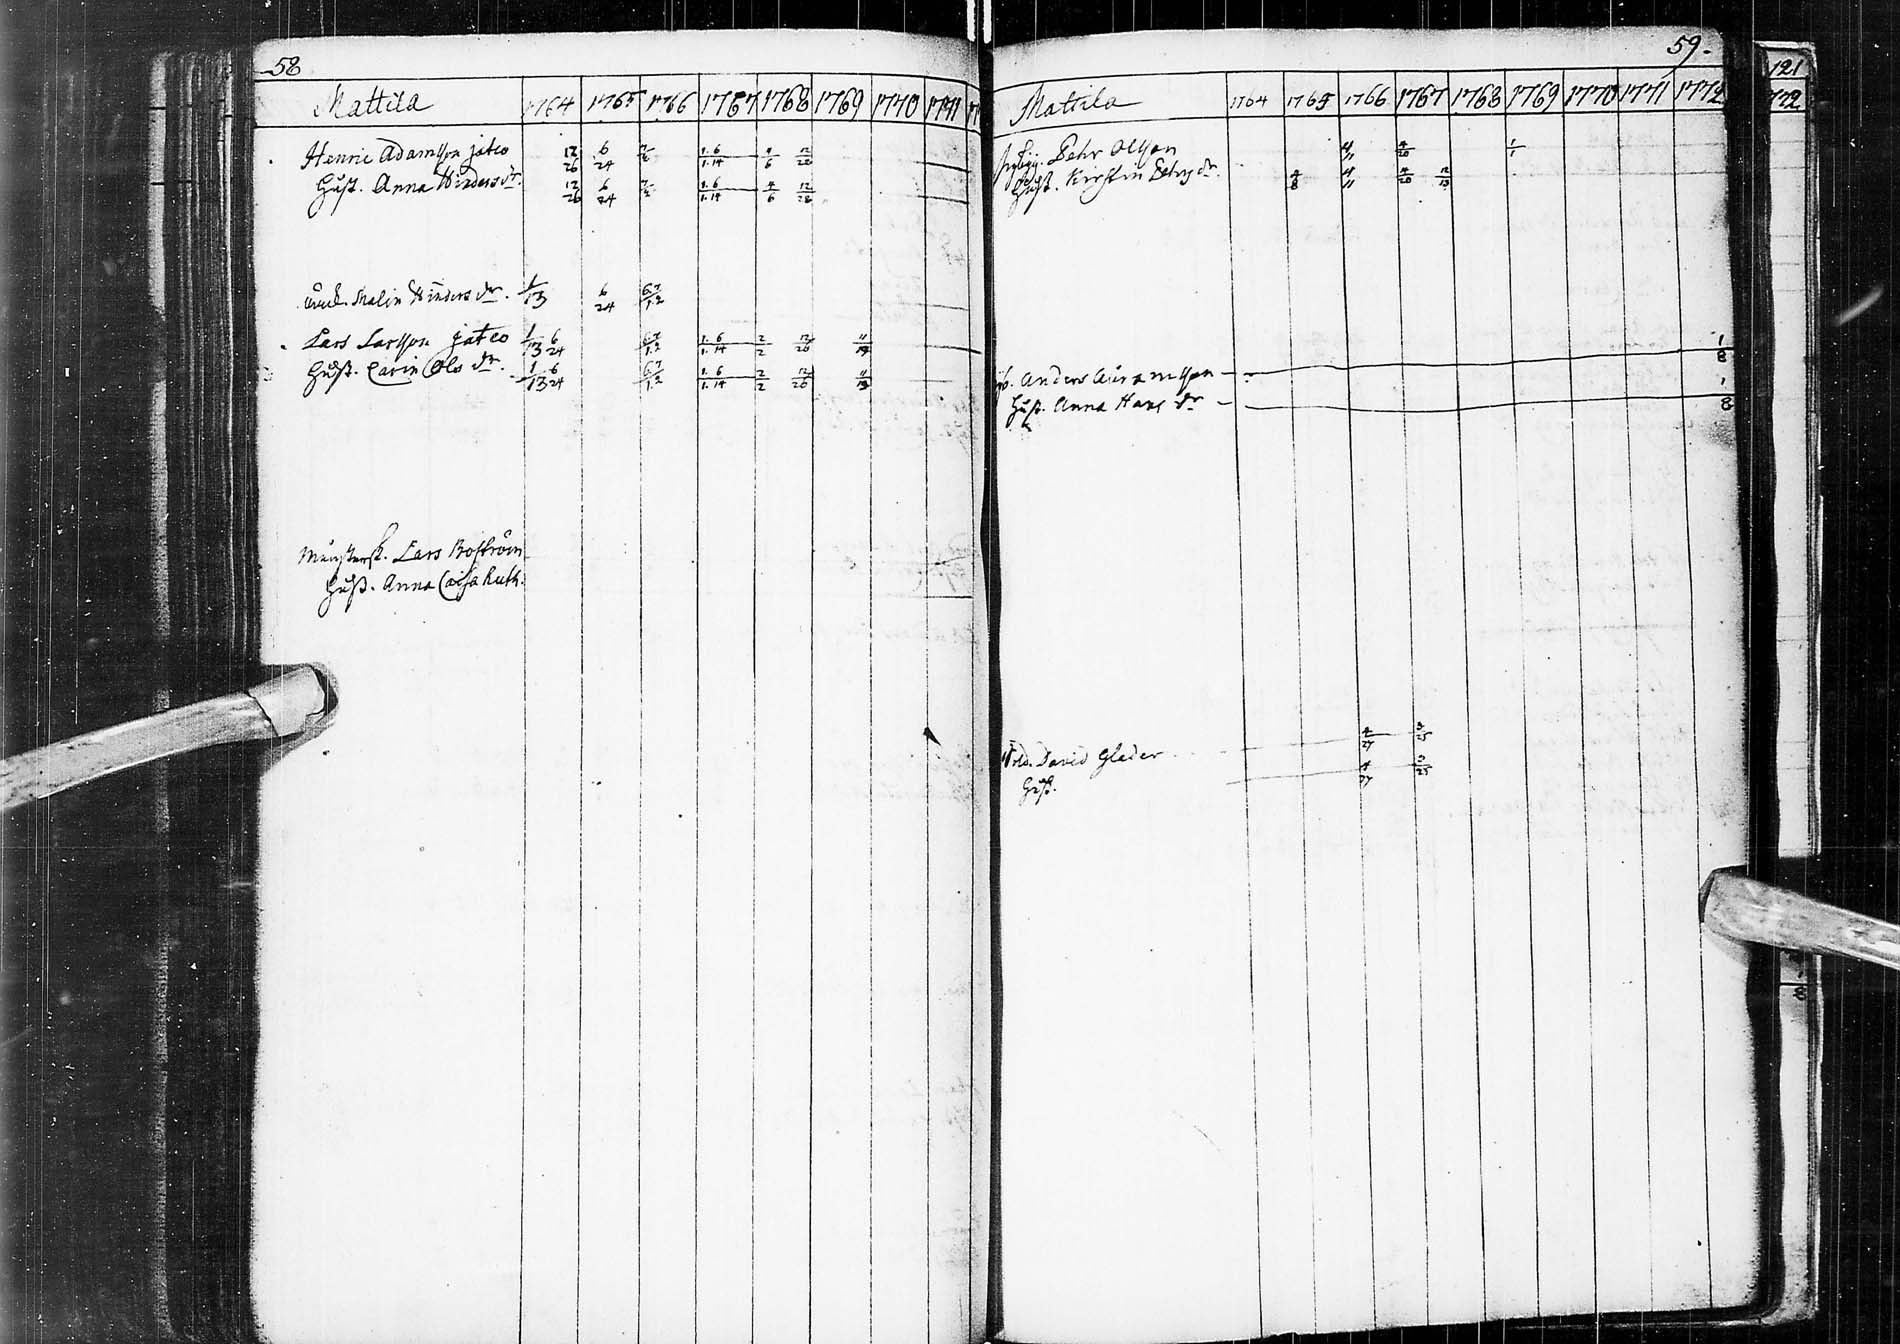 58
Mattila 1764 1765 1766 1767 1768 1769 1770 1771
Henric Adamsson jatco 12/26 6/24 1.6/1.14 12/20
Hust. Anna Hindersdr. 12/26 6/24 1.6/1.14 4/6 12/28
Malin Hindersdr. 1/13 6/24 6.7/1.2
Lars Larsson jatco 1/13 6/24 6.7/1.2 1.6/1.14 2/2 12/26 11/19
Hust. Carin Ols dr. 1/13 6/24 6.7/1.2 1.6/1.14 2/2 12/26 11/19
Lars Boström
Hust. Anna Caisa Ruth.
59.
Mattila 1764 1765 1766 1767 1768 1769 1770 1771 1772
Pehr Olsson 4/11 4/20 1/1
Hust. Kirstin Pehrsdr. 4/8 4/11 4/20 12/13
Anders Abramsson 1/8
Hust. Anna Hans dr 1/8
David Glader 4/27 3/25
Hust. 4/27 3/25
121
1772
1/8